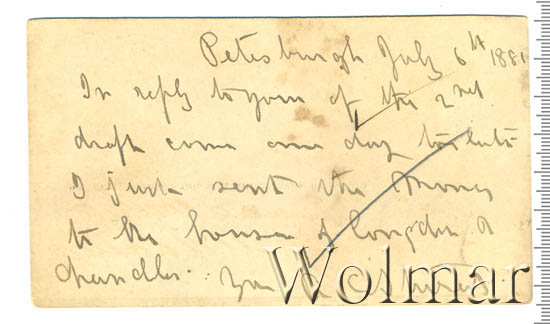 Petersburgh July 6th 1881
In reply to yours of the 2nd
draft come one day to late
I just sent the money
to the house of &
Chandler. Yours
Wolmar